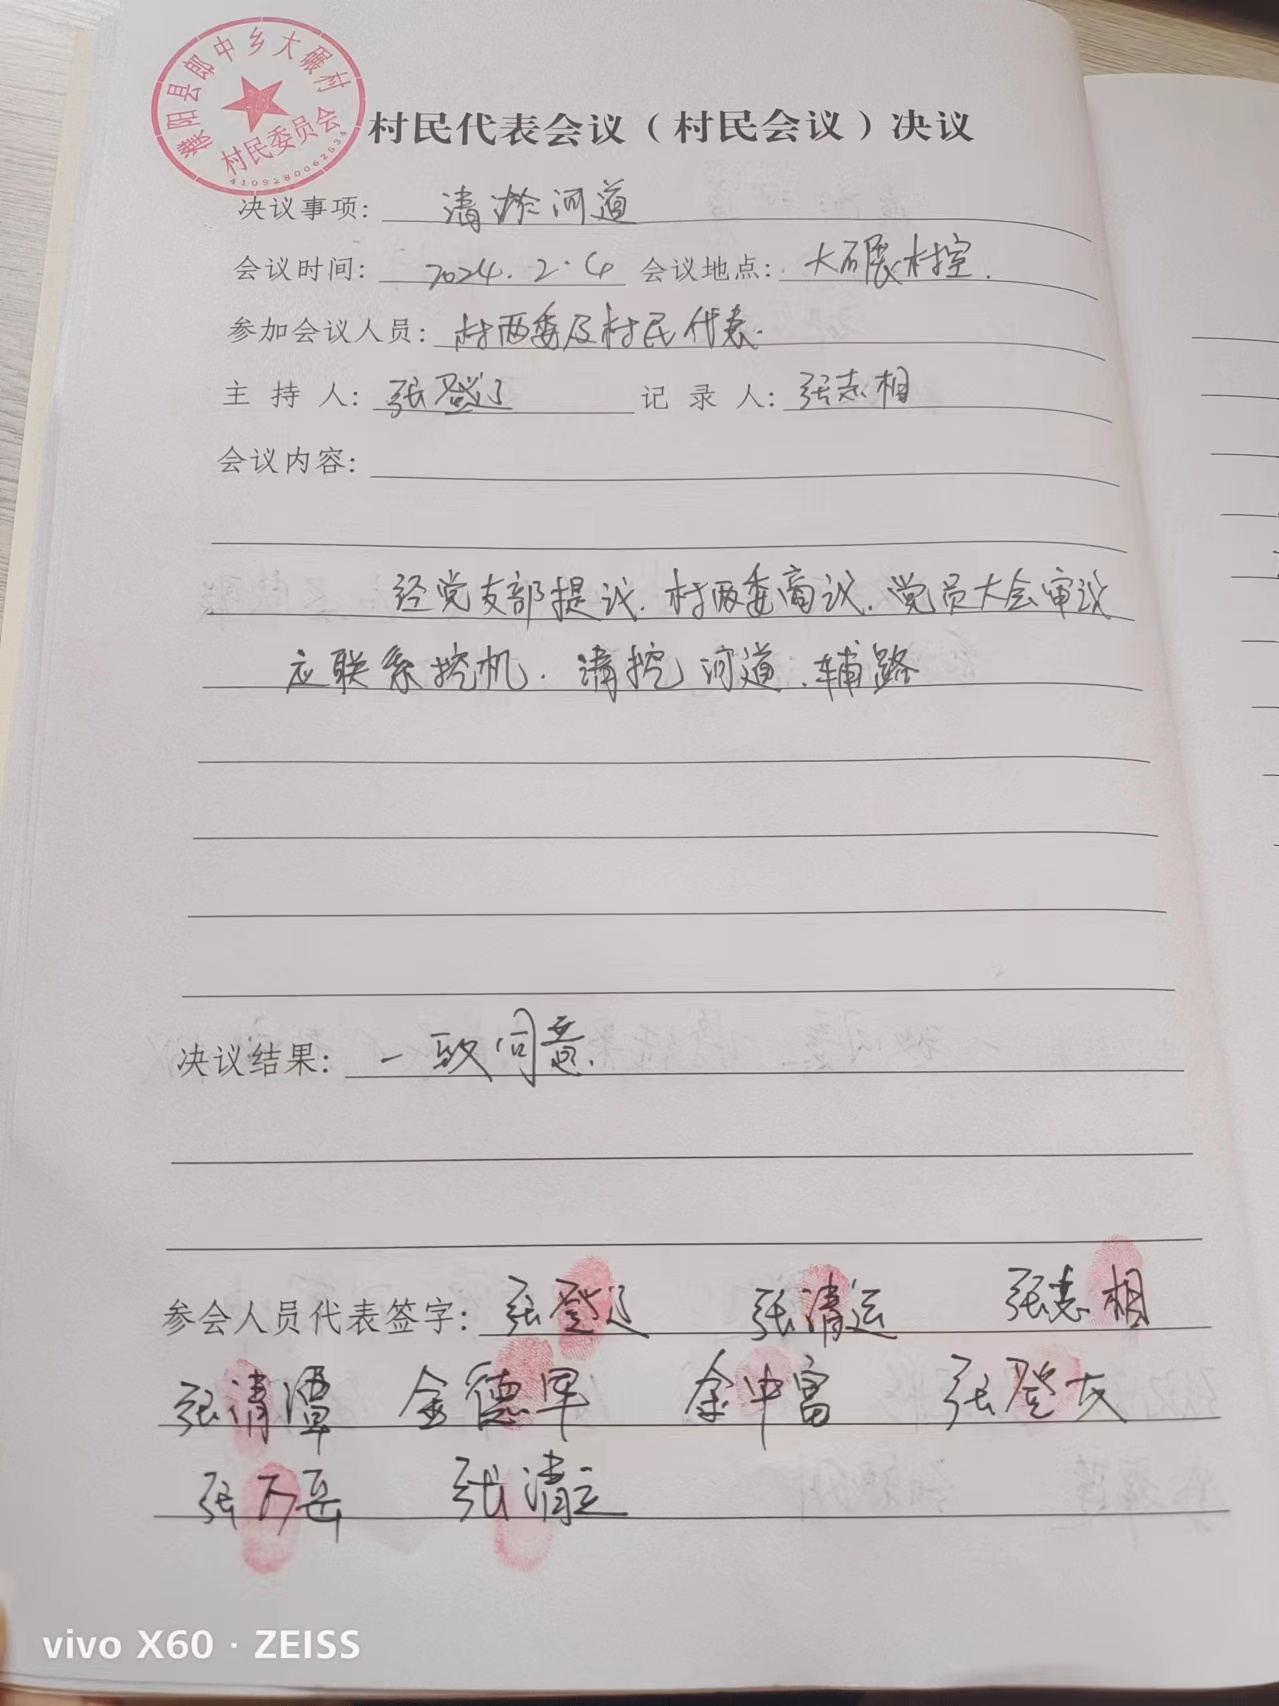 濮阳县郎中乡大碾村
村民委员会
4109280062534
村民代表会议（村民会议）决议
决议事项：清淤河道
会议时间：2024.2.4 会议地点：大碾村控.
参加会议人员：村两委及村民代表.
主 持 人：张登辽 记 录 人：张志相
会议内容：
经党支部提议.村两委商议.党员大会审议
应联系挖机.清挖河道.辅路
决议结果：一致同意.
参会人员代表签字：张登辽 张清运 张志相
张清潭 金德军 余中富 张登友
张万岳 张清立
vivo X60 · ZEISS